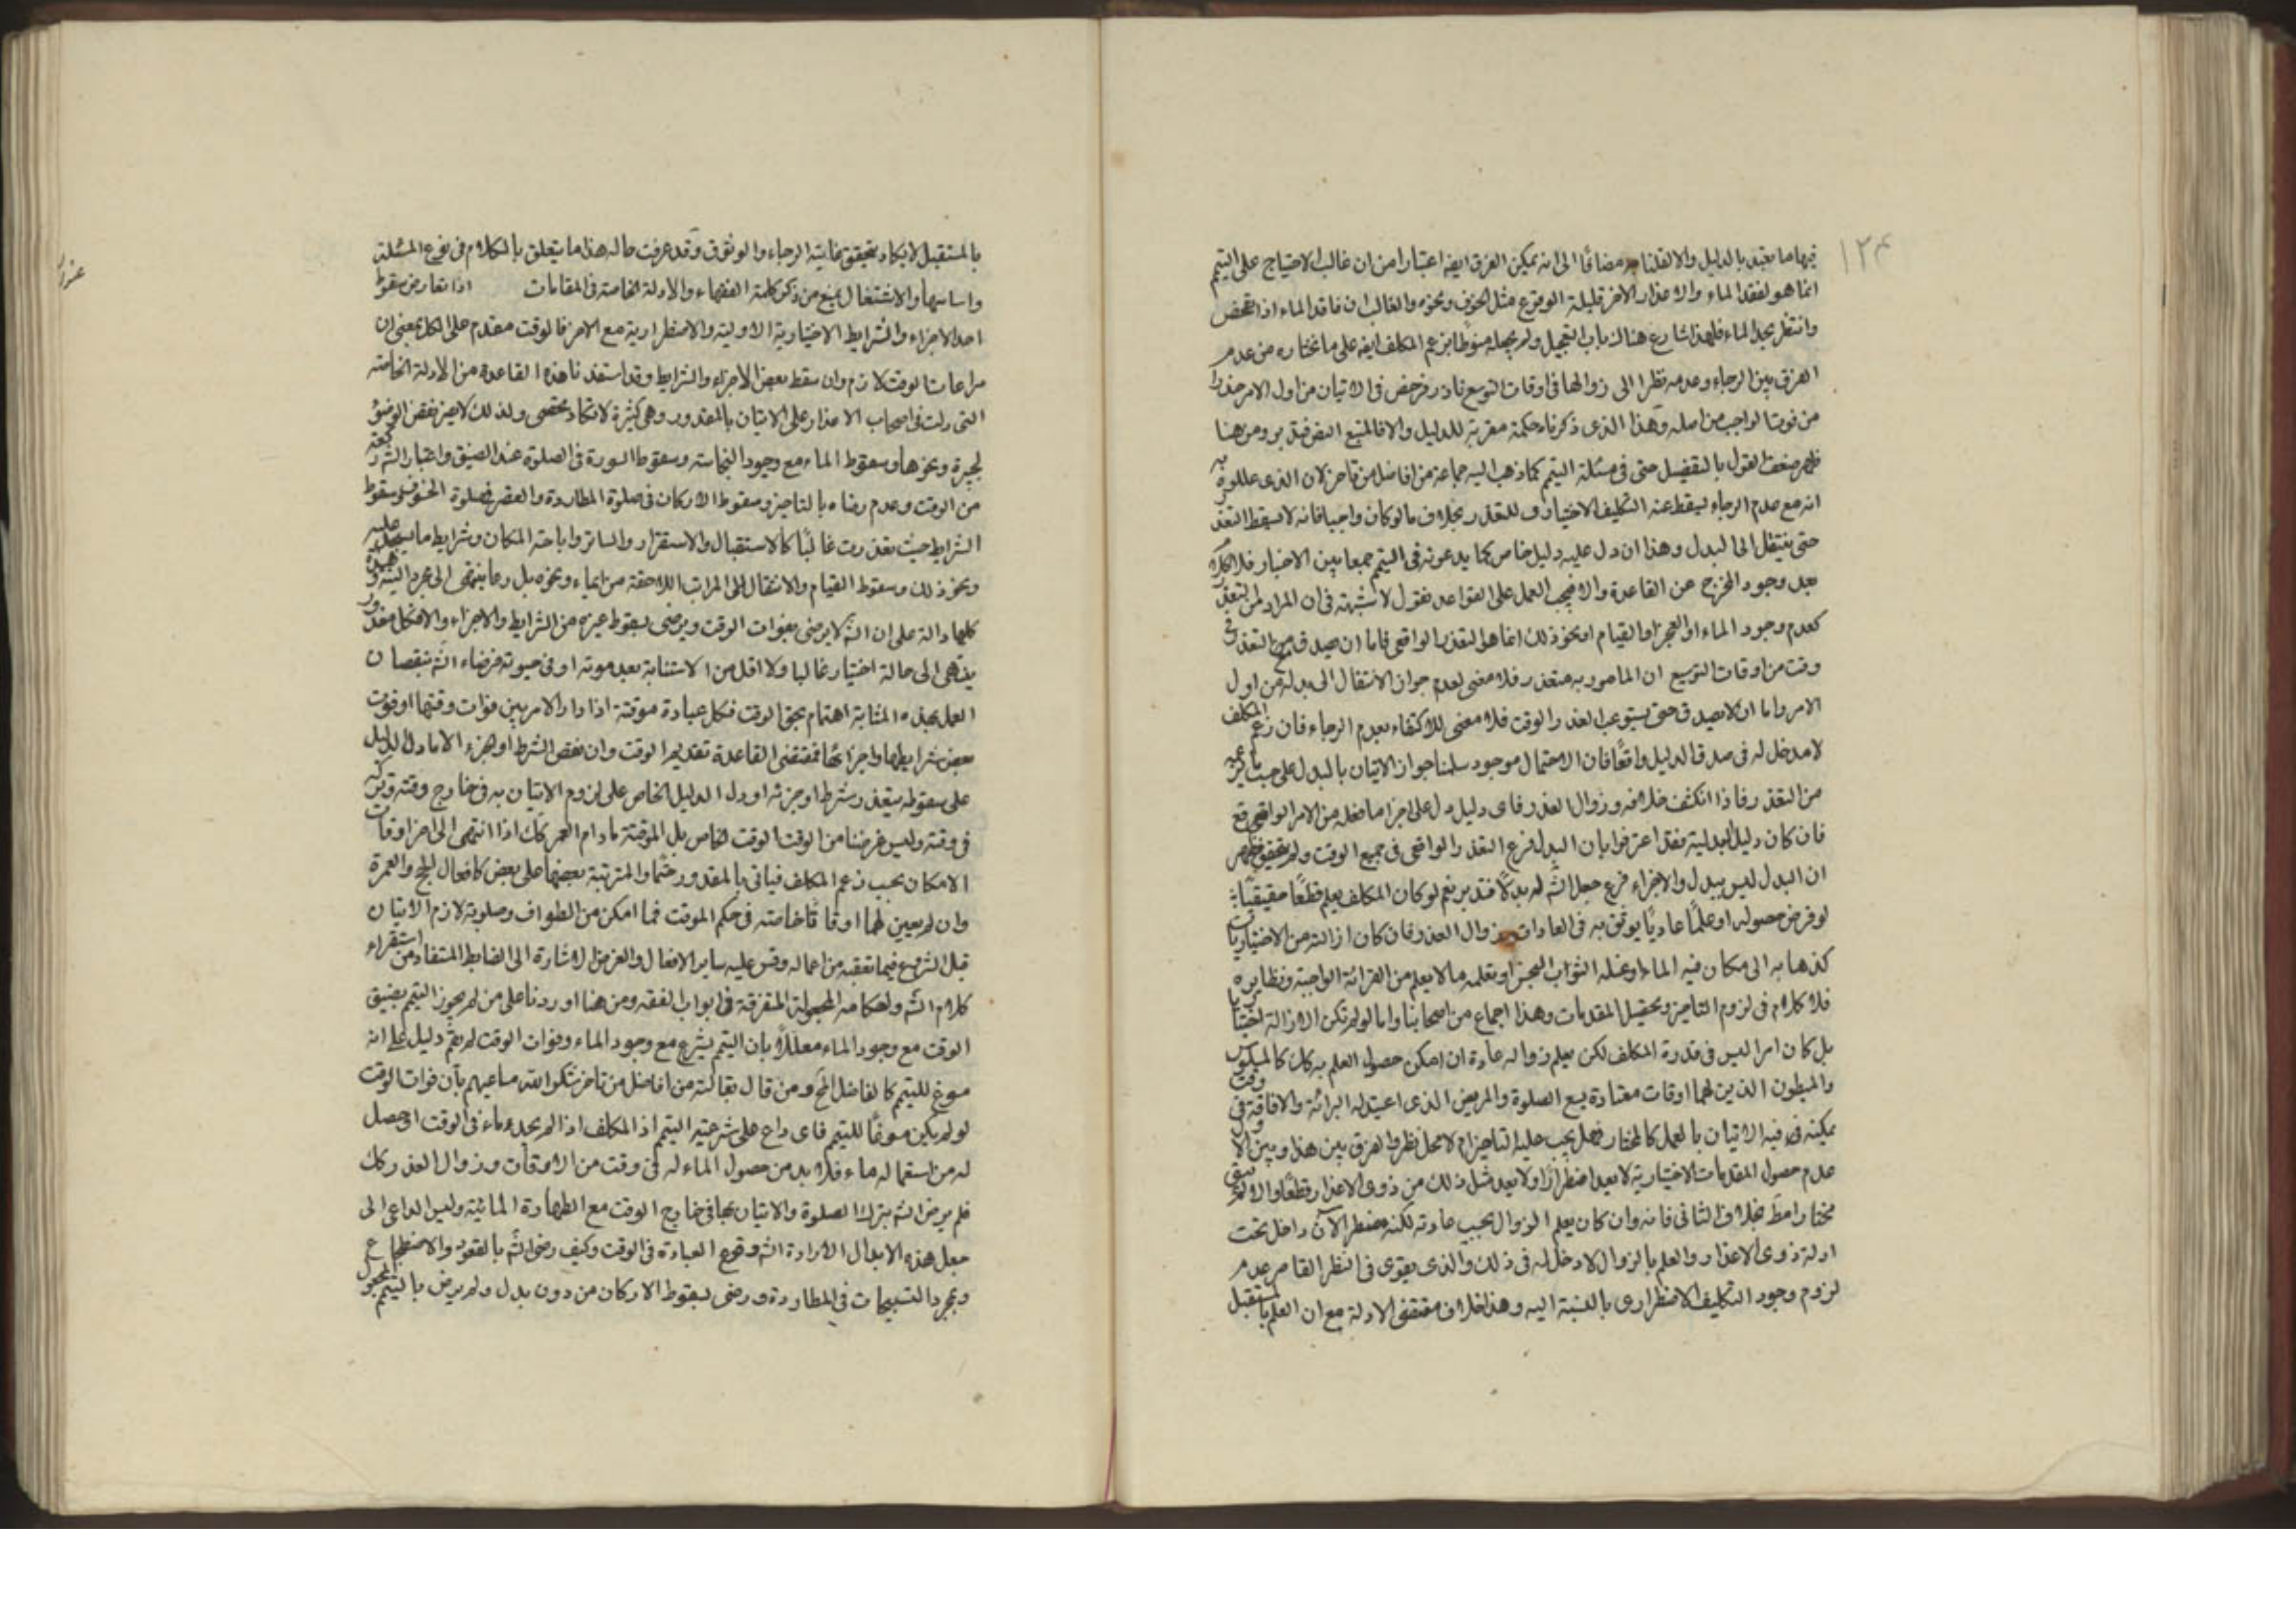 ١٢٤
فيها ما يعتد بالدليل والا لقلنا به مضافا الى انه يمكن الفرق ايضا اعتبارا من ان غالب الاحتياج على التيمم
انما هو لفقد الماء والاعذار الاخر قليلة الوقوع مثل الخوف ونحوه والغالب ان فاقد الماء اذا تفحص
وانتظر يجد الماء فلهذا شارع هناك باب التعجيل ولم يجعله منوطا بزعم المكلف ايضا على ما نختاره من عدم
الفرق بين الرجاء وعدمه نظرا الى زوالها في اوقات التوسع نادر فرخص في الاتيان من اول الامر حذرا
من فوت الواجب من اصله وهذا الذي ذكرناه حكمة مقربة للدليل والا فالمتبع النص فتدبر ومن هنا
ظهر ضعف القول بالتفصيل حتى في مسئلة التيمم كما ذهب اليه جماعة من افاضل من تاخر لان الذي عللوه به
انه مع عدم الرجاء يسقط عنه التكليف الاختياري للتعذر بخلاف ما لو كان واجبا فانه لا يسقط التعذر
حتى ينتقل الى البدل وهذا ان دل عليه دليل خاص كما يدعونه في التيمم جمعا بين الاخبار فلا كلام
بعد وجود المخرج عن القاعدة والا فيجب العمل على القواعد نقول لا شبهة في ان المراد لمن التعذر
كعدم وجود الماء او العجز او القيام او نحو ذلك انما هو التعذر الواقعي فاما ان يصدق مع التعذر في
وقت من اوقات التوسيع ان المامور به متعذر فلا معنى لعدم جواز الانتقال الى بدله من اول
الامر واما ان لا يصدق حتى يستوعب العذر الوقت فلا معنى للاكتفاء بعدم الرجاء فان زعم المكلف
لا مدخل له في صدق الدليل واقعا فان الاحتمال موجود سلمنا جواز الاتيان بالبدل على حسب ما زعمه
من التعذر فاذا انكشف خلافه وزوال العذر فاي دليل دل على اجزا ما فعله من الامر الواقعي
فان كان دليل البدلية فقد اعترفوا بان البدل فرع التعذر الواقعي في جميع الوقت ولم يتحقق فظهر
ان البدل ليس ببدل والاجزاء فرع جعل الش له بدلا فتدبر نعم لو كان المكلف يعلم قطعا حقيقيا
لو فرض حصوله او علما عاديا يوثق به في العادات بزوال العذر فان كان ازالته من الاختياريات
كذهابه الى مكان فيه الماء او غسله الثواب النجس او تعلمه ما لا يعلم من القرائة الواجبة ونظايره
فلا كلام في لزوم التاخير وتحصيل المقدمات وهذا اجماع من اصحابنا واما لو لم تكن الازالة اختياريا
بل كان امرا ليس في قدرة المكلف لكن يعلم زواله عادة ان امكن حصول العلم به كك كالمسلوس
والمبطون الذين لهما اوقات معتادة يسع الصلوة والمريض الذي اعتيد له البرائة والافاقة في وقت
يمكنه فيه الاتيان بالعمل كالمختار فهل يجب عليه التاخير ام لا محل نظر والفرق بين هذا وبين الاول
عدم حصول المقدمات الاختيارية لا يعد اضطرارا ولا يعد مثل ذلك من ذوي الاعذار قطعا والا لم يبق
مختارا قط بخلاف الثاني فانه وان كان يعلم الزوال بحسب عادته لكنه مضطر الآن داخل تحت
ادلة ذوي الاعذار والعلم بالزوال لا دخل له في ذلك والذي يقوى في النظر القاصر عدم
لزوم وجود التكليف الاضطراري بالنسبة اليه وهذا خلاف مقتضى الادلة مع ان العلم بالمستقبل
بالمستقبل لا يكاد يتحقق غايته الرجاء والوثوق وقد عرفت حاله هذا ما يتعلق بالكلام في فرع المسئلة
واساسها والاشتغال يمنع من ذكر كلمة الفقهاء والادلة الخاصة في المقامات اذا تعارض سقوط
احد الاجزاء والشرايط الاختيارية الاولية والاضطرارية مع الاخر فالوقت مقدم على الكل بمعنى ان
مراعات الوقت لازم وان سقط بعض الاجزاء والشرايط وقد استفدنا هذه القاعدة من الادلة الخاصة
التي دلت في اصحاب الاعذار على الاتيان بالمقدور وهي كثيرة لا تكاد تحصى ولذلك لا يضر نقض الوضوء
لجبيرة ونحوها وسقوط الماء مع وجود النجاسة وسقوط السورة في الصلوة عند الضيق واعتبار الش ركعة
من الوقت وعدم رضاه بالتاخير وسقوط الاركان في صلوة المطاردة والقصر في صلوة الخوف وسقوط
الشرايط حيث تعذرت غالبا كالاستقبال والاستقرار والساتر واباحة المكان وشرايط ما يسجد عليه
ونحو ذلك وسقوط القيام والانتقال الى المراتب اللاحقة من ايماء ونحوه بل ربما ينتهي الى مجرد النية وهذه
كلها دالة على ان الش لا يرضى بفوات الوقت ويرضى بسقوط غيره من الشرايط والاجزاء والا فكل معذور
ينتهي الى حالة اختيار غالبا ولا اقل من الاستنابة بعد موته او في حيوته فرضاء الش بنقصان
العمل بهذه المثابة اهتمام بحق الوقت فكل عبادة موقتة اذا دار الامر بين فوات وقتها او فوت
بعض شرايطها واجزائها فمقتضى القاعدة تقديم الوقت وان نقص الشرط او الجزء الا ما دل الدليل
على سقوطه بتعذر شرط او جزئه او دل الدليل الخاص على لزوم الاتيان به في خارج وقته وتركه
في وقته وليس غرضنا من الوقت الوقت الخاص بل الموقتة مادام العمر كك اذا انتهى الى اخر اوقات
الامكان بحسب زعم المكلف فياتي بالمقدور حتما والمترتبة بعضها على بعض كافعال الحج والعمرة
وان لم يعين لها اوقاتا خاصة في حكم الموقت فما امكن من الطواف وصلوته لازم الاتيان
قبل الشروع فيما تعقبه من اعماله وقس عليه ساير الافعال والغرض الاشارة الى الضابط المستفاد من استقراء
كلام الش واحكامه المجعولة المتفرقة في ابواب الفقه ومن هنا اوردنا على من لم يجوز التيمم بضيق
الوقت مع وجود الماء معللا بان التيمم يشرع مع وجود الماء وفوات الوقت لم يقم دليل على انه
مسوغ للتيمم كالفاضل المح ومن قال بمقالته من افاضل من تاخر شكر الله مساعيهم بان فوات الوقت
لو لم يكن مسوغا للتيمم فاي داع على شرعية التيمم اذ المكلف اذا لم يجد ماء في الوقت او حصل
له من استعماله ماء فلا بد من حصول الماء له في وقت من الاوقات وزوال العذر كك
فلم يرض الش بترك الصلوة والاتيان بها في خارج الوقت مع الطهارة المائية وليس الداعي الى
جعل هذه الابدال الا ارادة الش وقوع العبادة في الوقت وكيف رضي الش بالقعود والاضطجاع
وبمجرد التسبيحات في المطاردة ورضي بسقوط الاركان من دون بدل ولم يرض بالتيمم المجعول